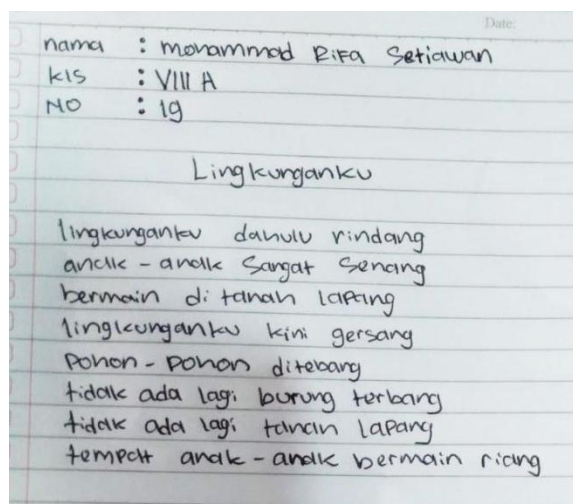 Date:
nama : mohammad Rifa Setiawan
kls : VIII A
NO : 19
Lingkunganku
lingkunganku dahulu rindang
anak - anak sangat senang
bermain di tanah lapang
lingkunganku kini gersang
pohon - pohon ditebang
tidak ada lagi burung terbang
tidak ada lagi tanah lapang
tempat anak - anak bermain riang